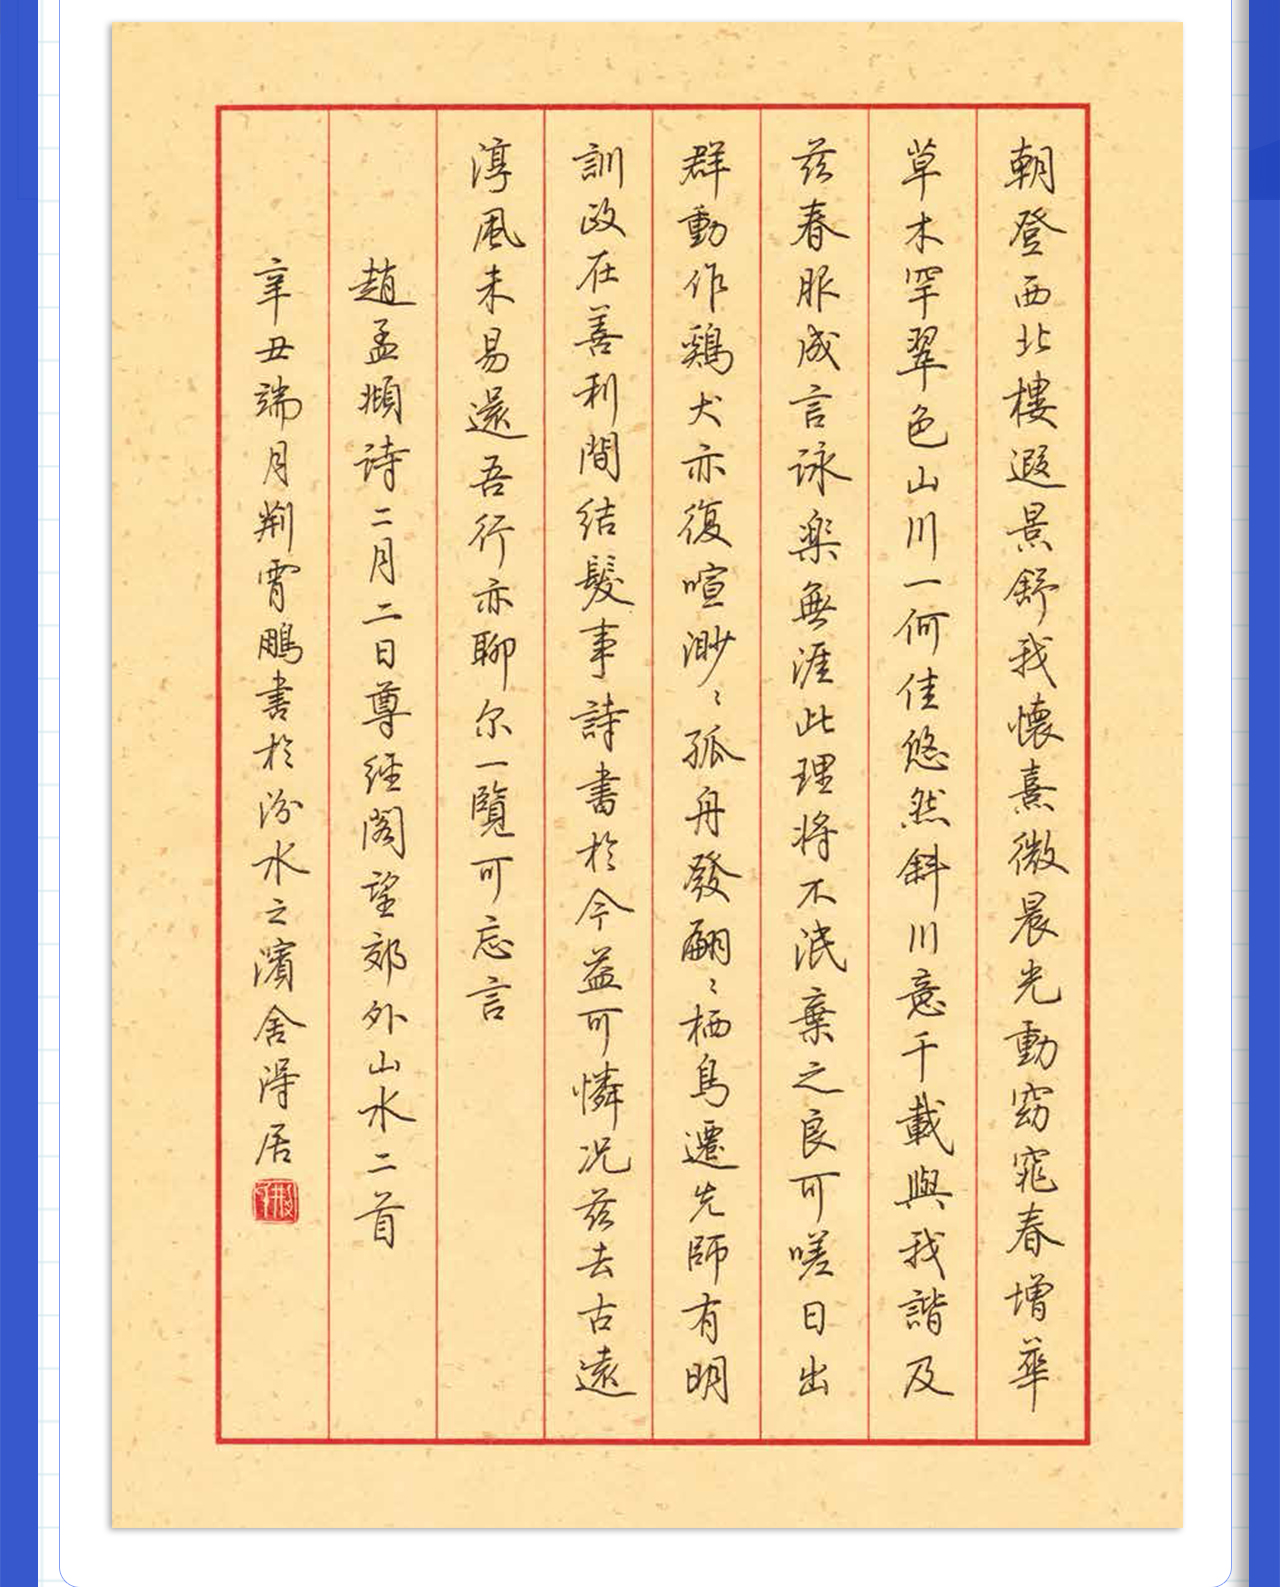 朝登西北樓遐景舒我懷熹微晨光動窈窕春增華
草木罕翠色山川一何佳悠然斜川意千載與我諧及
茲春服成言詠楽無涯此理将不泯棄之良可嗟日出
群動作鶏犬亦復喧渺〻孤舟發翩〻栖鳥遷先師有明
訓政在善利間結髮事詩書於今益可憐况茲去古遠
淳風未易還吾行亦聊尔一覽可忘言
趙孟頫詩二月二日尊經閣望郊外山水二首
辛丑端月荆霄鵬書於汾水之濱舍得居